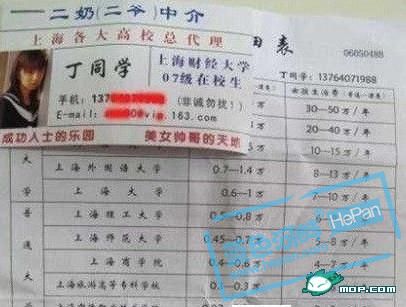 二奶(二爷)中介
上海各大高校总代理
丁同学
上海财经大学
07级在校生
手机:137
(非诚勿扰!)
E-mail:
@vip.163.com
成功人士的乐园 美女帅哥的天地
表
06050488
丁同学:13764071988
30—50万/年
20—40万/年
10—15万/年
上海外国语大学 0.7—1.4万 8—13万/年
上海大学 0.6—1万 7—10万/年
上海理工大学 0.5—0.8万 6—
上海师范大学 0.45—0.7万 5—8万/年
上海商学院 0.4—0.6万 4—7万/年
上海旅游高等专科学校 0.1—0.3万
大
学
普
通
大
HePan
MOP.com